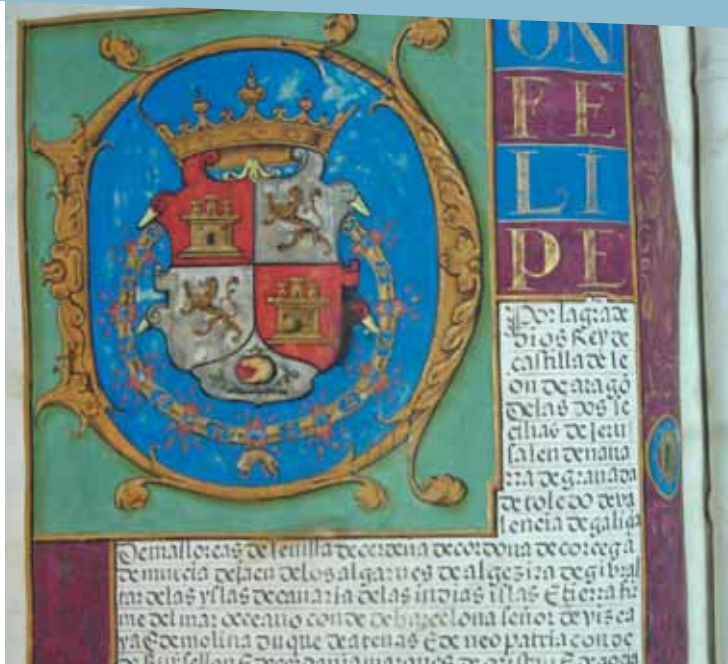 DON
FE
LI
PE
Por la gra de
Dios Rey de
castilla de le
on de arago
delas dos se
cilias de Jeru
salen de naua
rra de granada
de toledo de va
lencia de galizia
De mallorcas de seuilla de cerdena de cordoua de corcega
de murcia de Jaen delos algarues de algezira de gibral
tar delas yslas de canaria delas indias islas E tierra fir
me del mar oceano conde de barcelona señor de vizca
ya E de molina duque de atenas E de neopatria conde
de Ruysellon E de